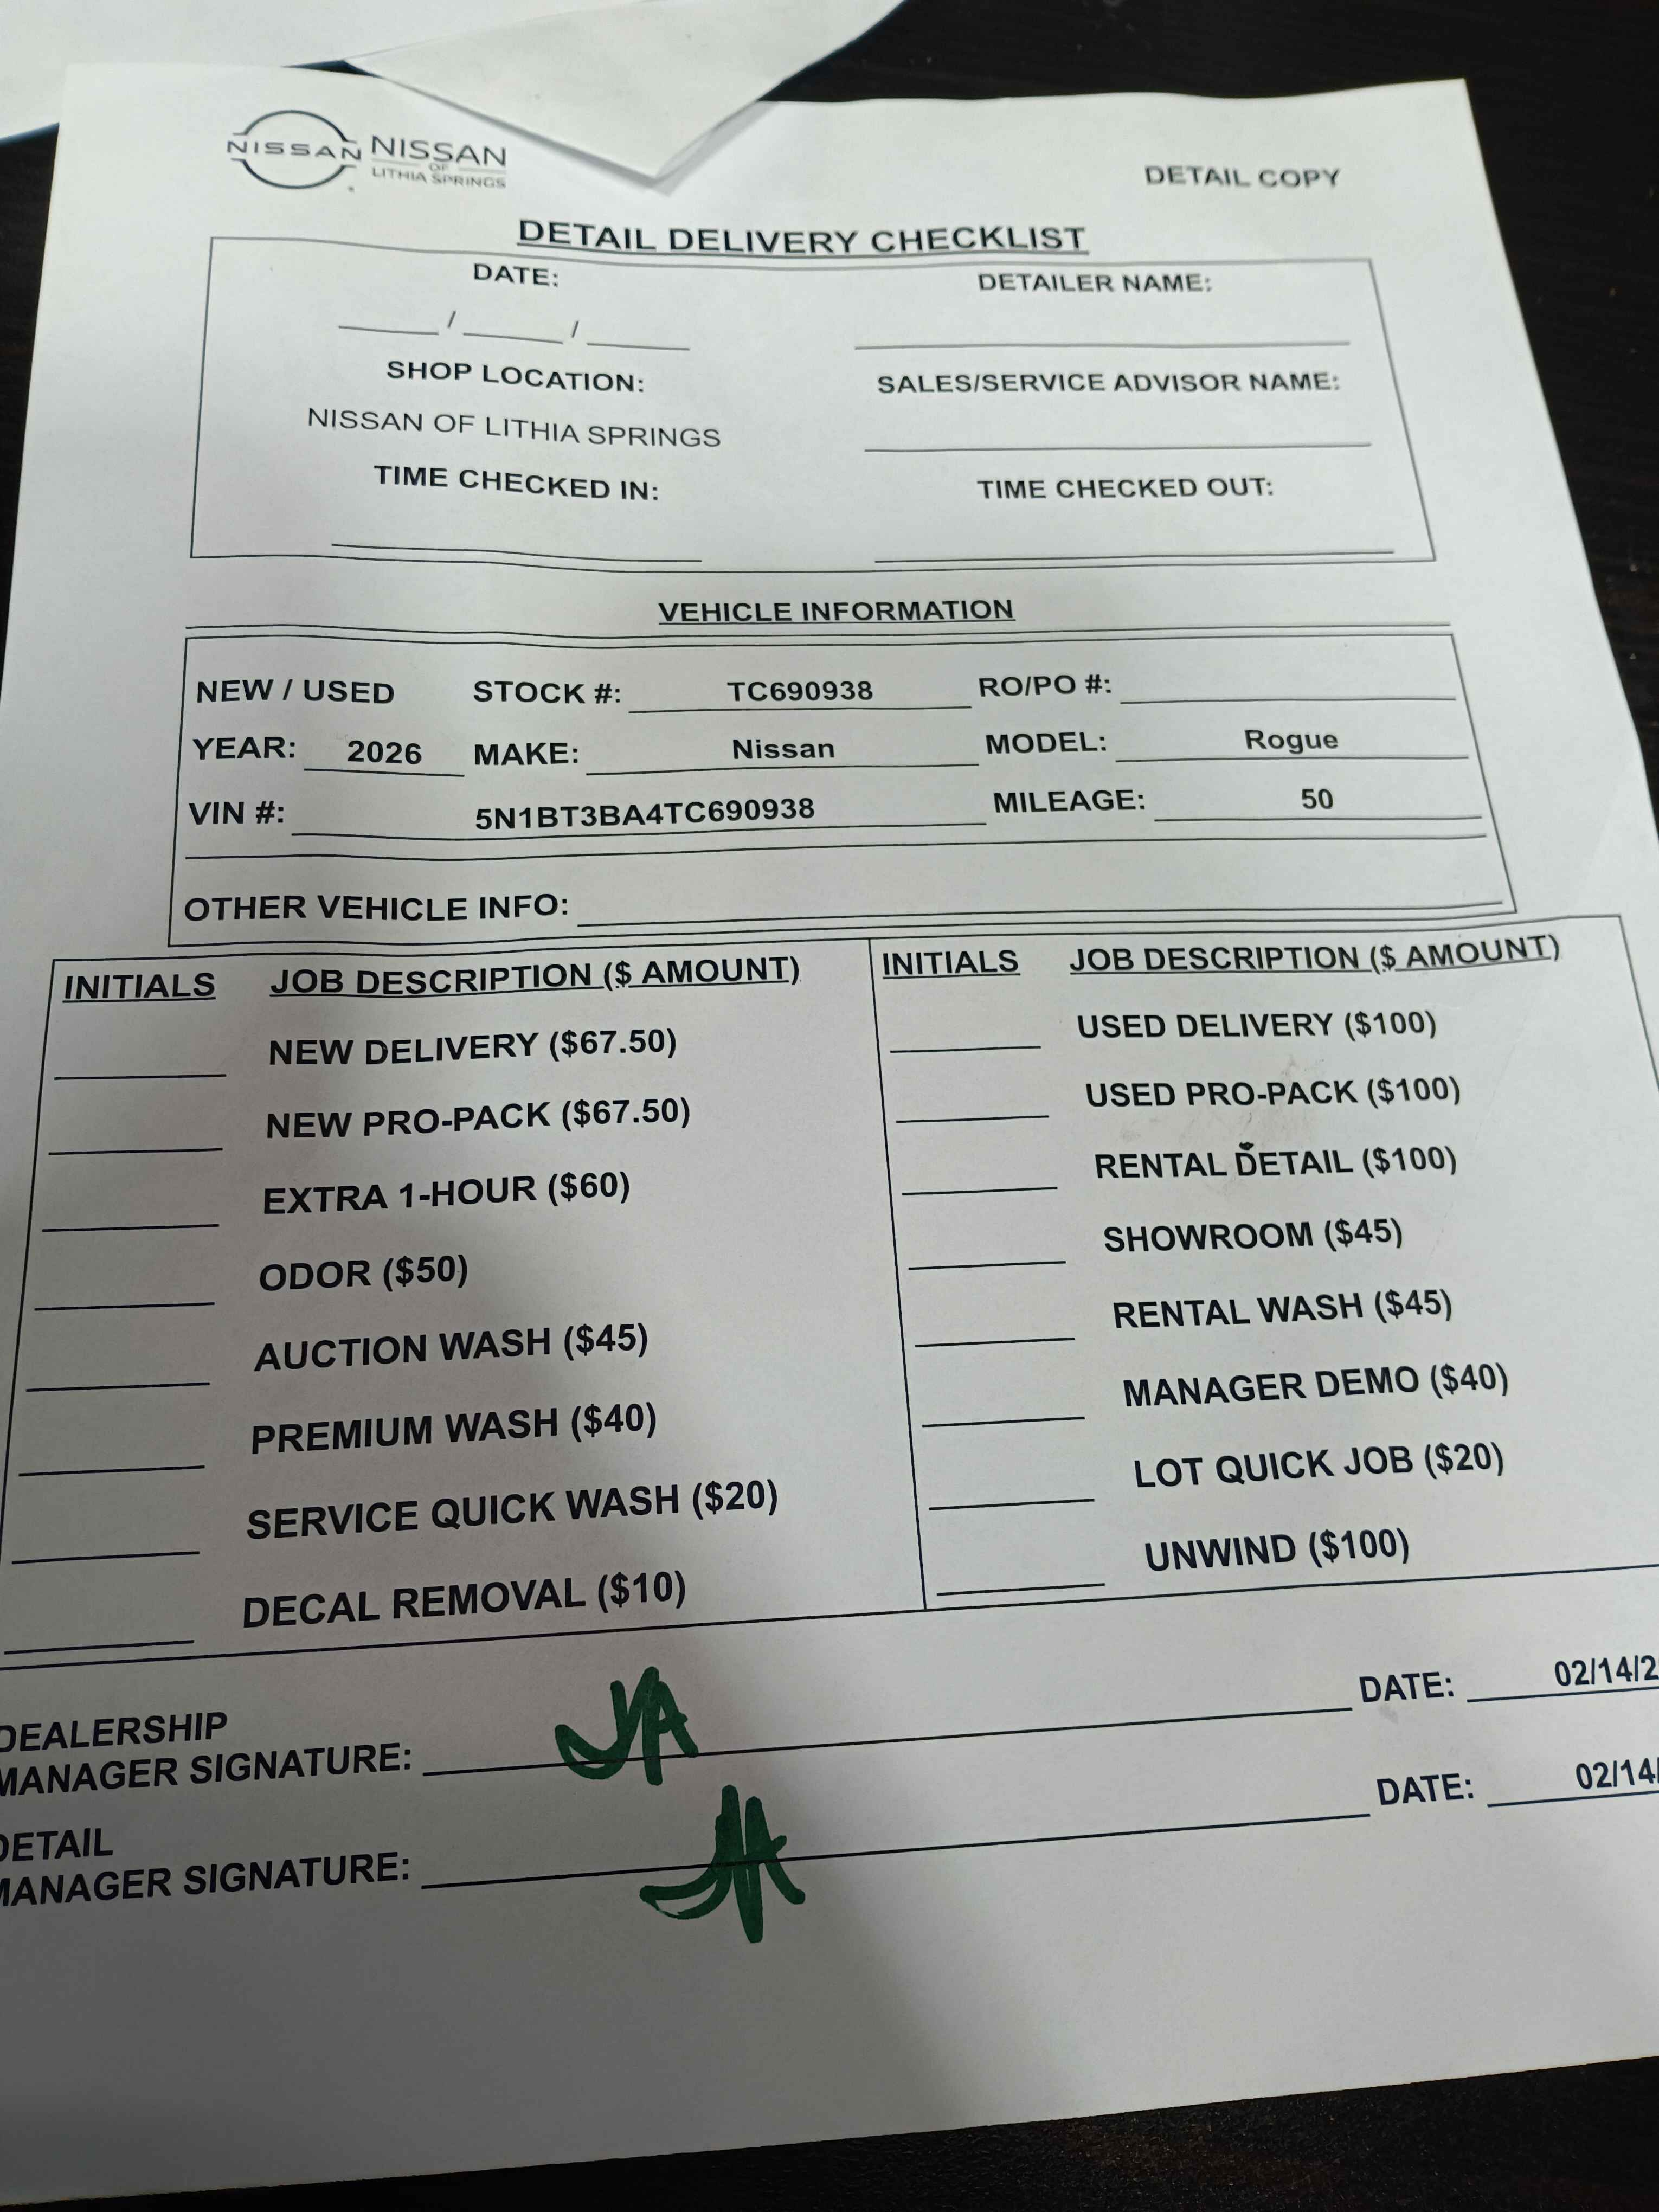 NISSAN NISSAN
OF
LITHIA SPRINGS
DETAIL COPY
DETAIL DELIVERY CHECKLIST
DATE: DETAILER NAME:
/ /
SHOP LOCATION: SALES/SERVICE ADVISOR NAME:
NISSAN OF LITHIA SPRINGS
TIME CHECKED IN: TIME CHECKED OUT:
VEHICLE INFORMATION
NEW / USED STOCK #: TC690938 RO/PO #:
YEAR: 2026 MAKE: Nissan MODEL: Rogue
VIN #: 5N1BT3BA4TC690938 MILEAGE: 50
OTHER VEHICLE INFO:
INITIALS JOB DESCRIPTION ($ AMOUNT) INITIALS JOB DESCRIPTION ($ AMOUNT)
NEW DELIVERY ($67.50) USED DELIVERY ($100)
NEW PRO-PACK ($67.50) USED PRO-PACK ($100)
EXTRA 1-HOUR ($60) RENTAL DETAIL ($100)
ODOR ($50) SHOWROOM ($45)
AUCTION WASH ($45) RENTAL WASH ($45)
PREMIUM WASH ($40) MANAGER DEMO ($40)
SERVICE QUICK WASH ($20) LOT QUICK JOB ($20)
DECAL REMOVAL ($10) UNWIND ($100)
DEALERSHIP
MANAGER SIGNATURE: JA DATE: 02/14/2
DETAIL
MANAGER SIGNATURE: JA DATE: 02/14/